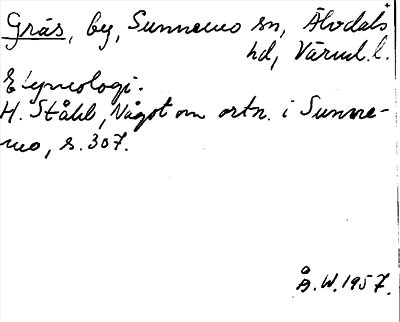 Gräs, by, Sunnemo sn, Älvdals
hd, Värml. l.
Etymologi.
H. Ståhl, Något om ortn. i Sunne-
mo, s. 307.
Å. W. 1957.